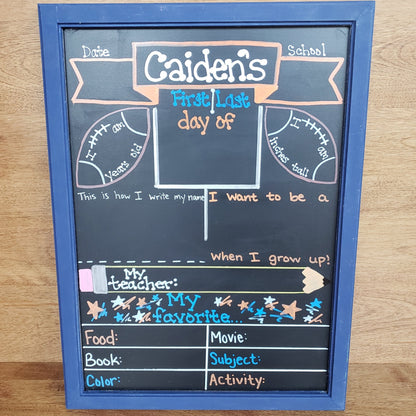 Date School
Caiden's
First Last
day of
I am
years old
I am
inches tall
This is how I write my name
I want to be a
when I grow up!
My
teacher:
My
favorite...
Food: Movie:
Book: Subject:
Color: Activity: